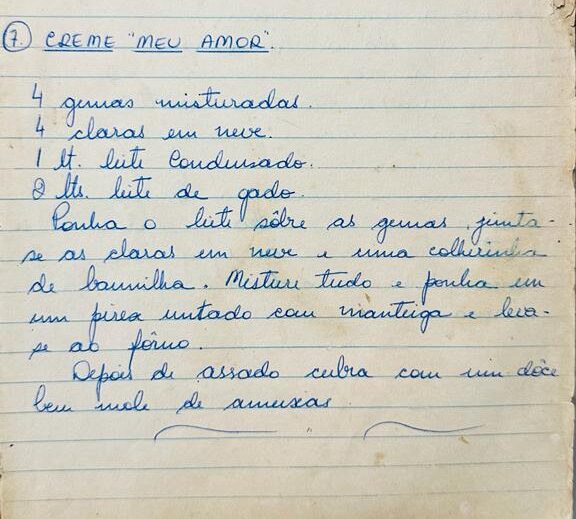 7. CREME "MEU AMOR".
4 gemas misturadas.
4 claras em neve.
1 lt. leite condensado.
2 lts. leite de gado.
Ponha o leite sôbre as gemas junta-
se as claras em neve e uma colherinha
de baunilha. Misture tudo e ponha em
um pirex untado com manteiga e leva-
se ao fôrno.
Depois de assado cubra com um dôce
bem mole de ameixas